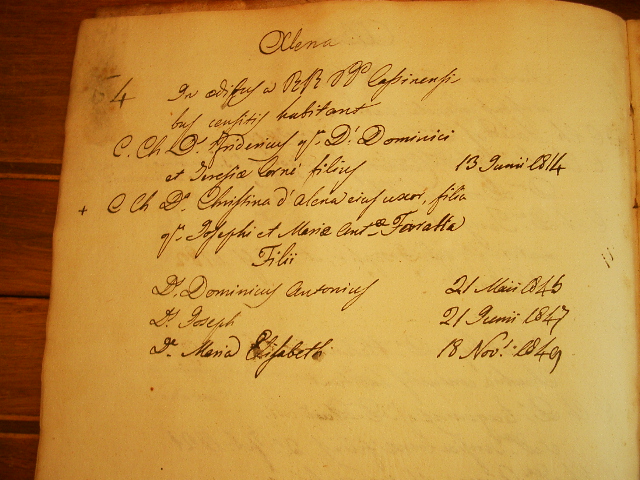 Alena
4 In ædibus a RR PP Cassinensi-
bus censitis habitant
C. Ch D.s Fridericus q.m D.i Dominici
et Teresiæ Corné filius 13 Junii 1814
+ C Ch D.a Christina d'Alena eius uxor, filia
q.m Josephi et Mariæ Ant.æ Taratta
Filii
D.s Dominicus Antonius 21 Maii 1846
D.s Joseph 21 Junii 1847
D.a Maria Elisabeth 18 Nov.i 1849